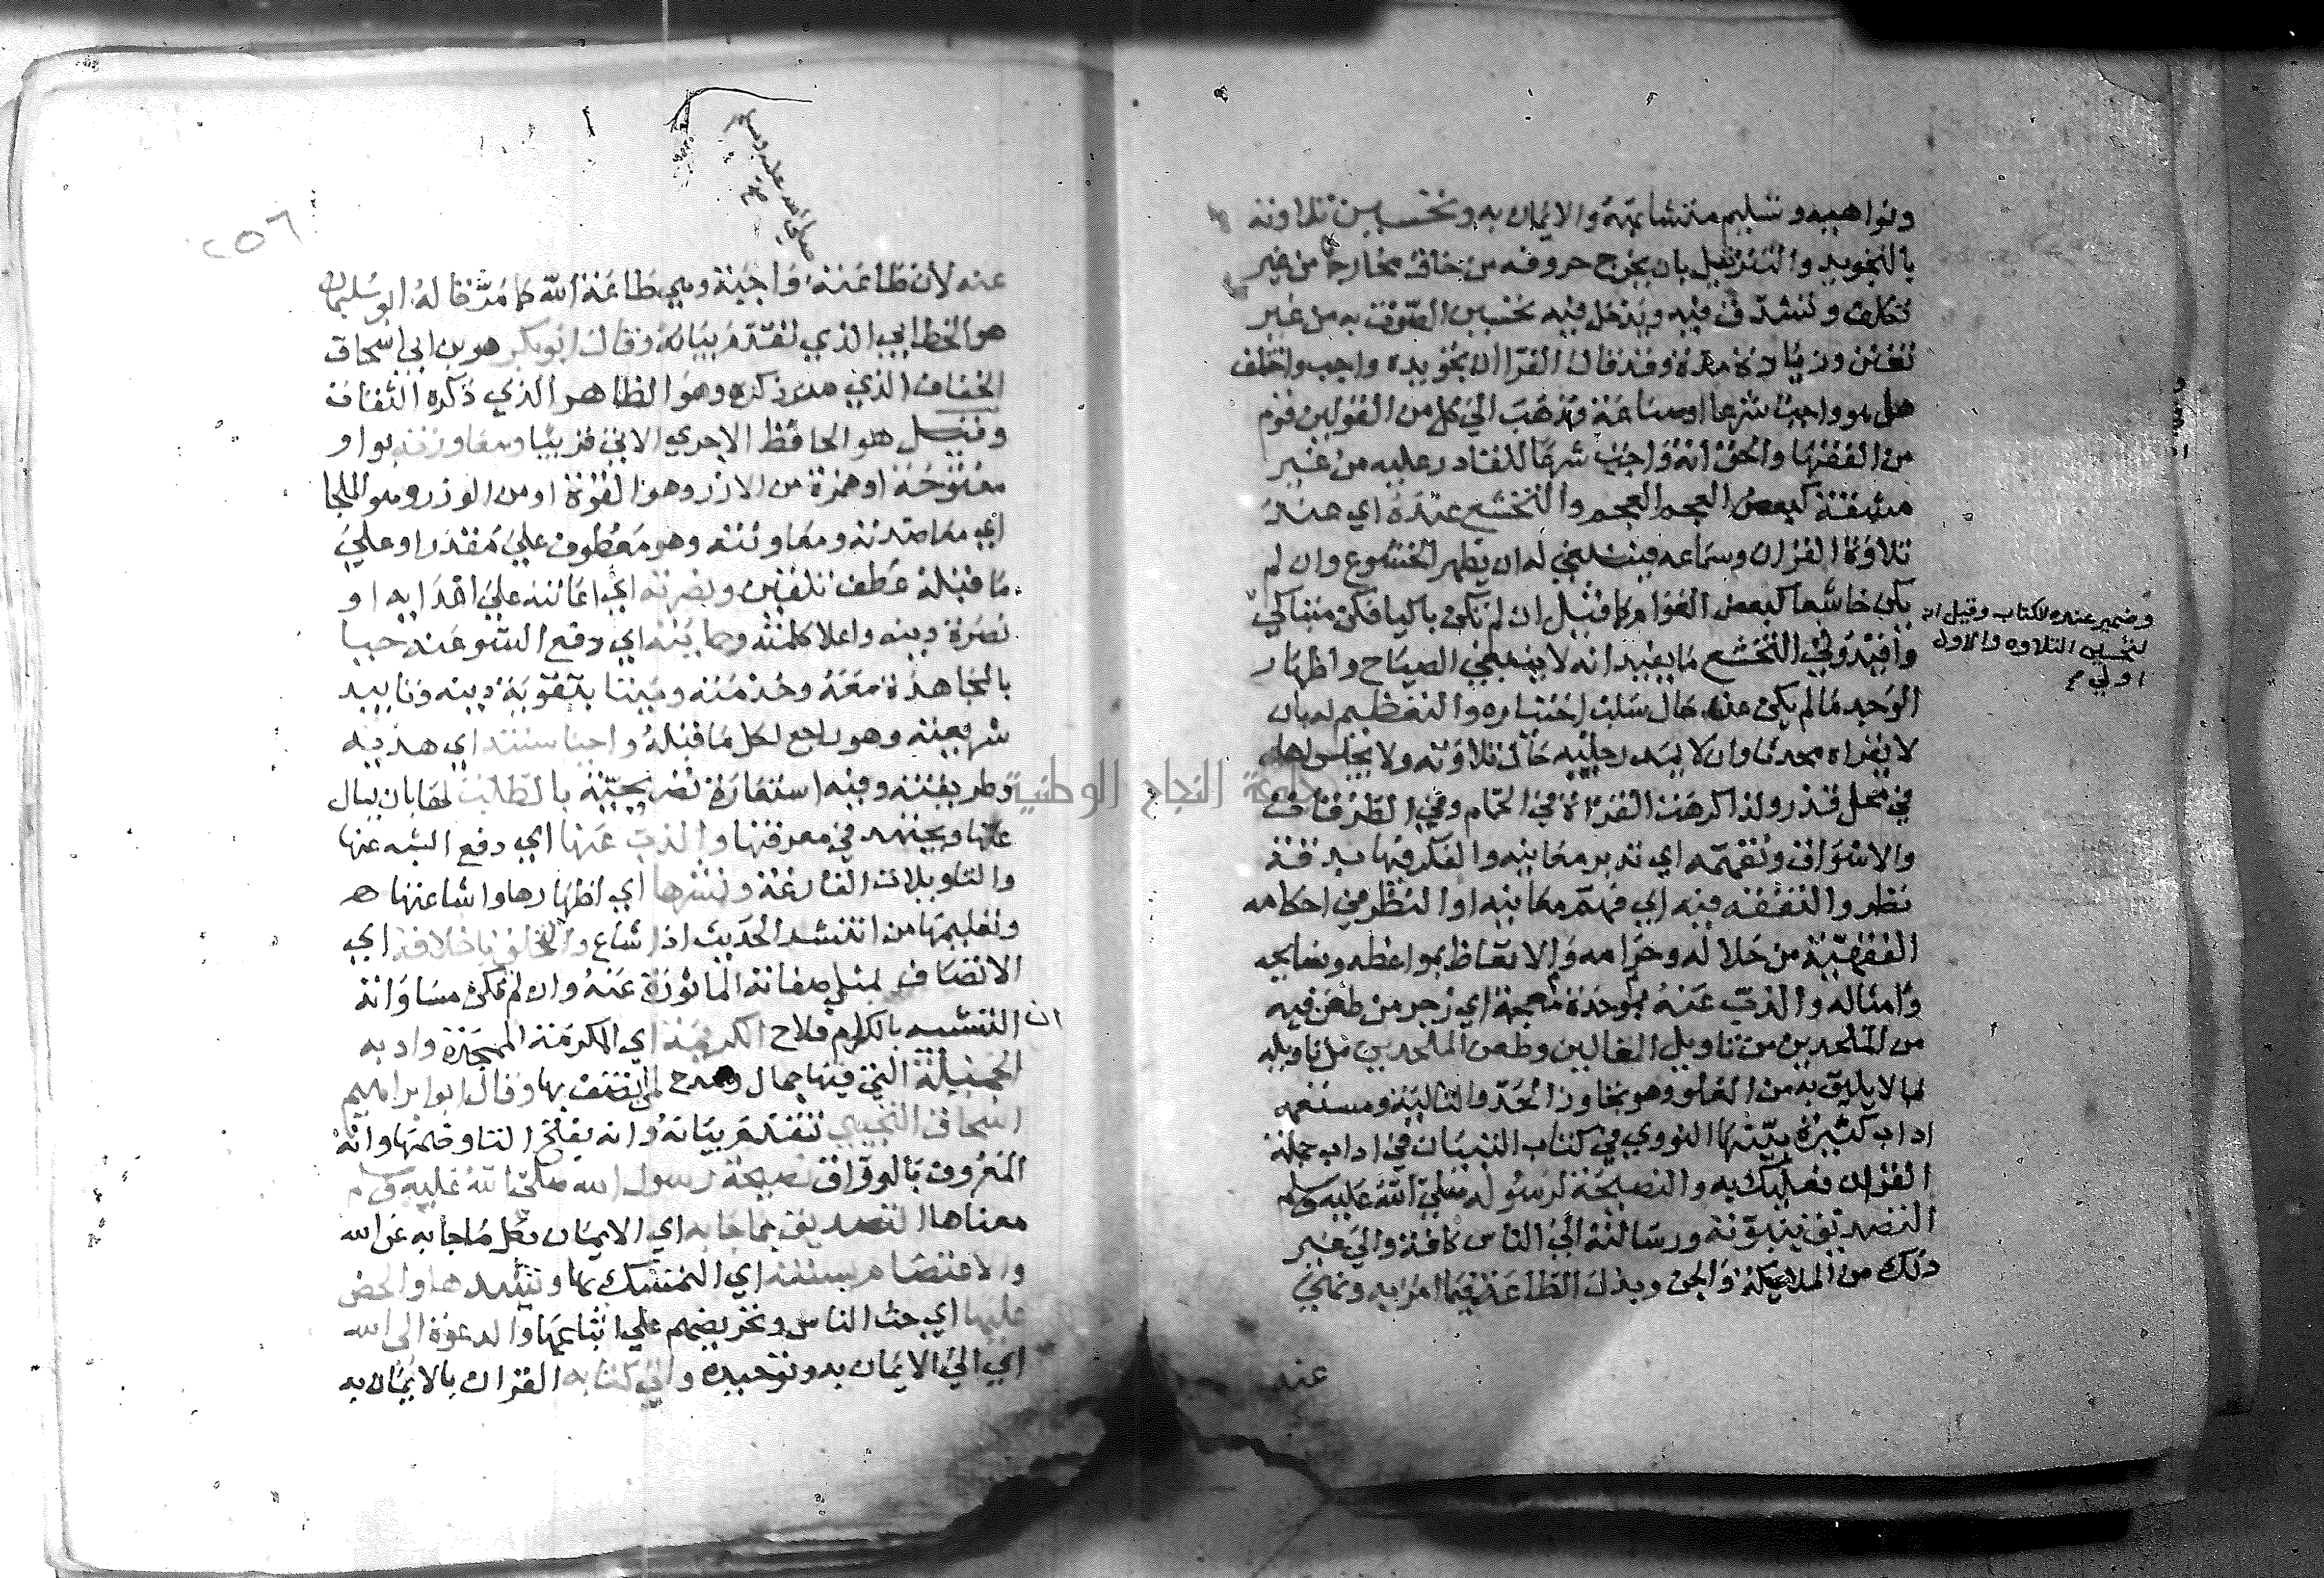 ونواهيه وتسليم متشابهه والايمان به وتحسين تلاوته
بالتجويد والترتيل بان يخرج حروفه من حاق مخارجها من غير
تكلف وتشدق فيه ويدخل فيه تحسين الصوت به من غير
تغن وزيادة مدة وقد قال القراان تجويده واجب واختلف
هل هو واجب شرعا او صناعة وذهب الي كل من القولين قوم
من الفقها والحق انه واجب شرعا للقادر عليه من غير
مشقة كبعض العجم والتخشع عنده اي عند
تلاوة القران وسماعه فينبغي له ان يظهر الخشوع وان لم
يكن خاشعا كبعض العوام كما قيل ان لم تكن باكيا فكن متباكي
وافيد في التخشع ما يفيد انه لا ينبغي الصياح واظهار
الوجد ما لم يكن عنه حال سلب اختياره والتعظيم له بان
لا يقراه محدثا وان لا يمد رجليه حال تلاوته ولا يجلس لها
في محل قذر ولذا كرهت القراة في الحمام وفي الطرقات
والاسواق وتفهمه اي تدبر معانيه والفكر فيها بدقة
نظر والتفقه فيه اي فهم معانيه او النظر في احكامه
الفقهية من حلاله وحرامه والاتعاظ بمواعظه ونصايحه
وامثاله والذب عنه بموحدة معجمة اي زجر من طعن فيه
من الملحدين من تاويل الغالين وطعن الملحدين من تاويله
بما لا يليق به من الغلو وهو تجاوز الحد
اداب كثيرة بينها النووي في كتاب التبيان في اداب حملة
القران فعليك به والنصيحة لرسوله صلي الله عليه وسلم
التصديق بنبوته ورسالته الي الناس كافة والي غير
ذلك من الملايكة والجن وبذل الطاعة فيما امر به ونهي
عنه
وضمير عنده للكتاب وقيل انه
لتحسين التلاوة والاول
اولي
٢٥٦
عنه لان طاعته واجبة وهي طاعة الله كما مر قاله ابو سليمان
هو الخطابي الذي تقدم بيانه وقال ابو بكر هو بن ابي اسحاق
الخفاف الذي مر ذكره وهو الظاهر الذي ذكره الثقات
وقيل هو الحافظ الاجري الاتي قريبا وموازرته بواو
مفتوحة او همزة من الازر وهو القوة او من الوزر وهو الملجا
اي معاضدته ومعاونته وهو معطوف علي مقدر او علي
ما قبله عطف تلقين ونصرته اي اعانته علي اعدايه او
نصرة دينه واعلا كلمته وحمايته اي دفع السو عنه حيا
بالمجاهدة معه وخدمته وميتا بتقوية دينه وتاييد
شريعته وهو راجع لكل ما قبله واحيا سنته اي هديه
وطريقته وفيه استعارة تصريحية بالطلب لها بان يسال
عنها ويجتهد في معرفتها والذب عنها اي دفع الشبه عنها
والتاويلات الفارغة ونشرها اي اظهارها واشاعتها
وتعليمها من انتشر الحديث اذا شاع والتخلق باخلاقه اي
الاتصاف بمثل صفاته الماثورة عنه وان لم تكن مساواته
ان التشبه بالكرام فلاح الكريمة اي المكرمة المبجلة وادابه
الجميلة التي فيها جمال ومدح لمن اتصف بها وقال ابو ابراهيم
اسحاق التجيبي تقدم بيانه وانه بفتح التا وضمها وانه
المعروف بالوراق نصيحة رسول الله صلي الله عليه وسلم
معناها التصديق بما جا به اي الايمان بكل ما جا به عن الله
والاعتصام بسنته اي التمسك بها والحض
عليها اي حث الناس وتحريضهم علي اتباعها والدعوة الى الله
اي الي الايمان به وتوحيده والي كتابه القران بالايمان به
جامعة النجاح الوطنية